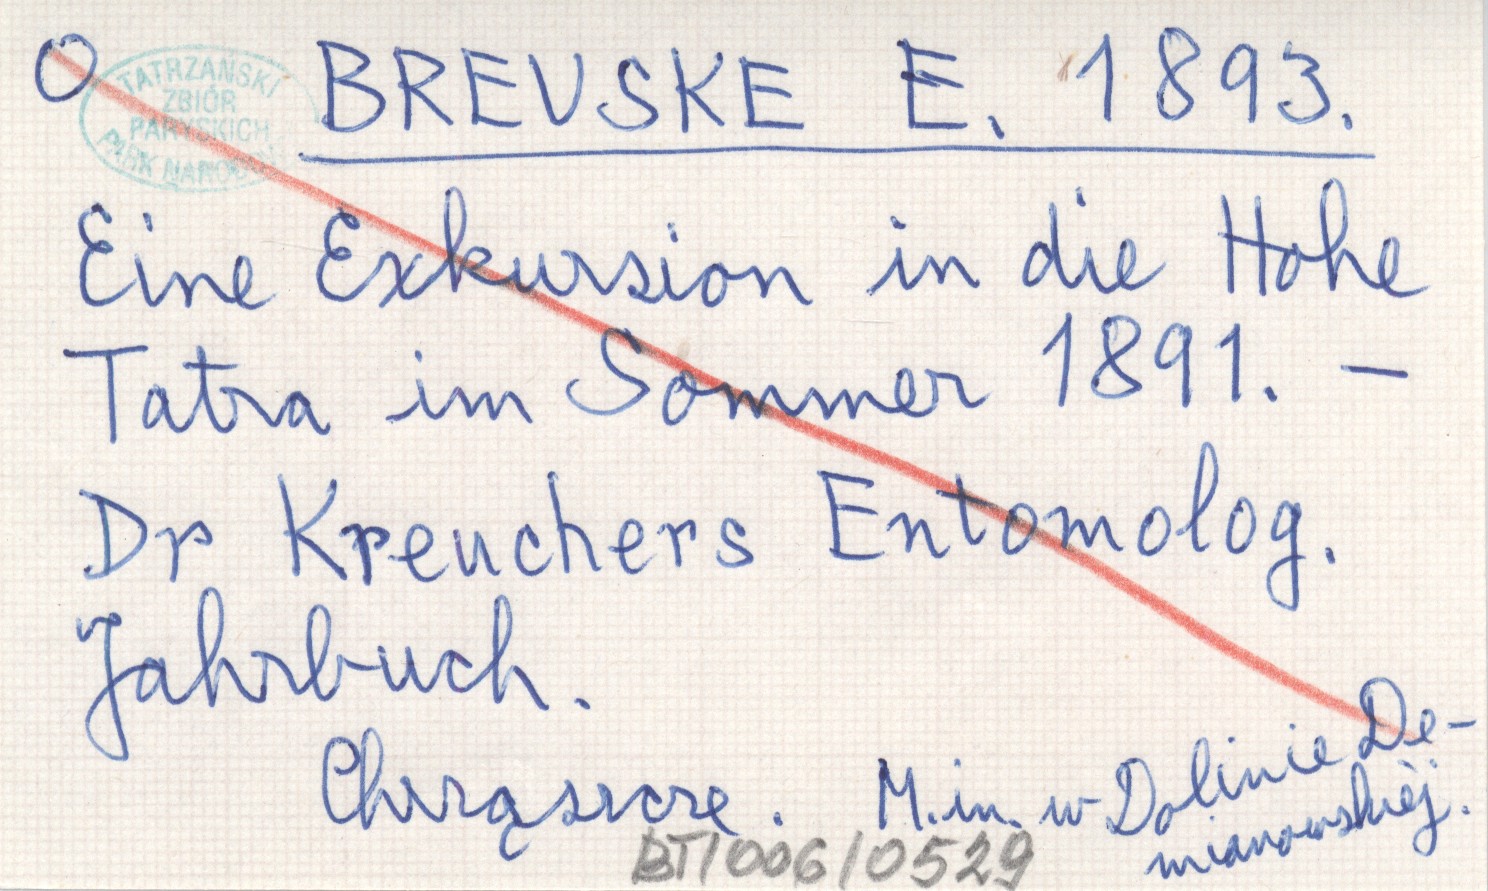 O
TATRZAŃSKI
ZBIÓR
PARYSKICH
PARK NARODOWY
BREVSKE E. 1893.
Eine Exkursion in die Hohe
Tatra im Sommer 1891. —
Dr Kreuchers Entomolog.
Jahrbuch.
Chrząszcze. M.in. w Dolinie De-
mianowskiej.
BT/006/0529